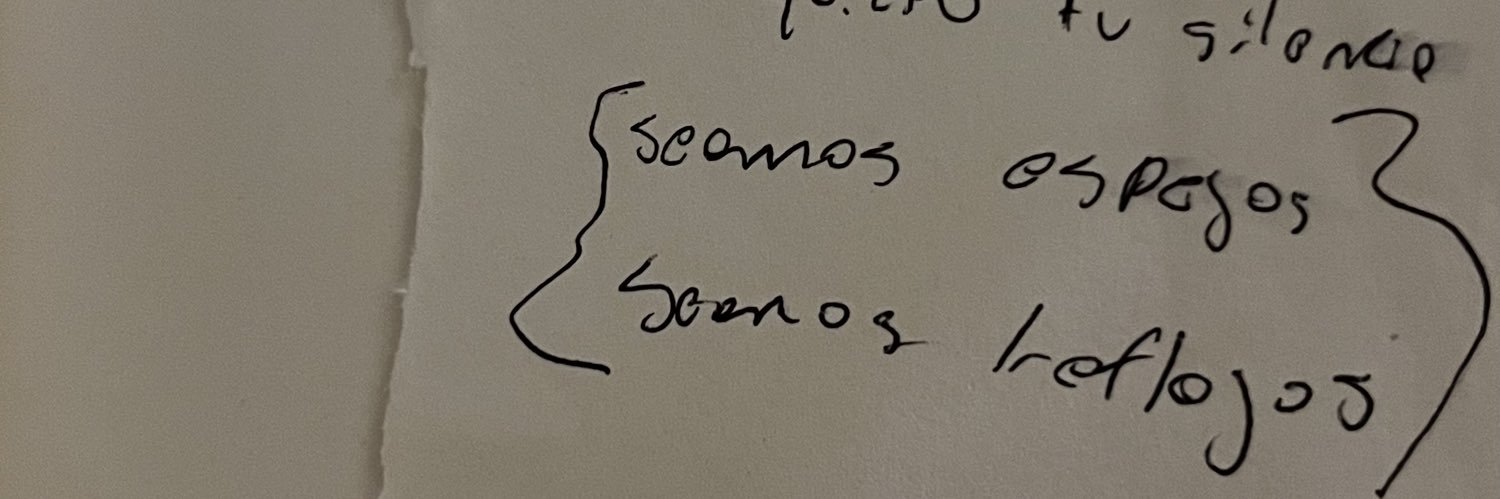 tu silencio
{seamos espejos}
seamos reflejos